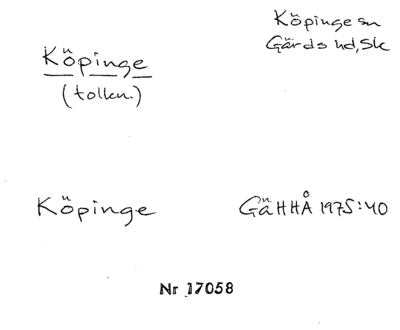 Köpinge sn
Gärds hd, Sk
Köpinge
(tolkn.)
Köpinge
GäHHÅ 1975:40
Nr 17058